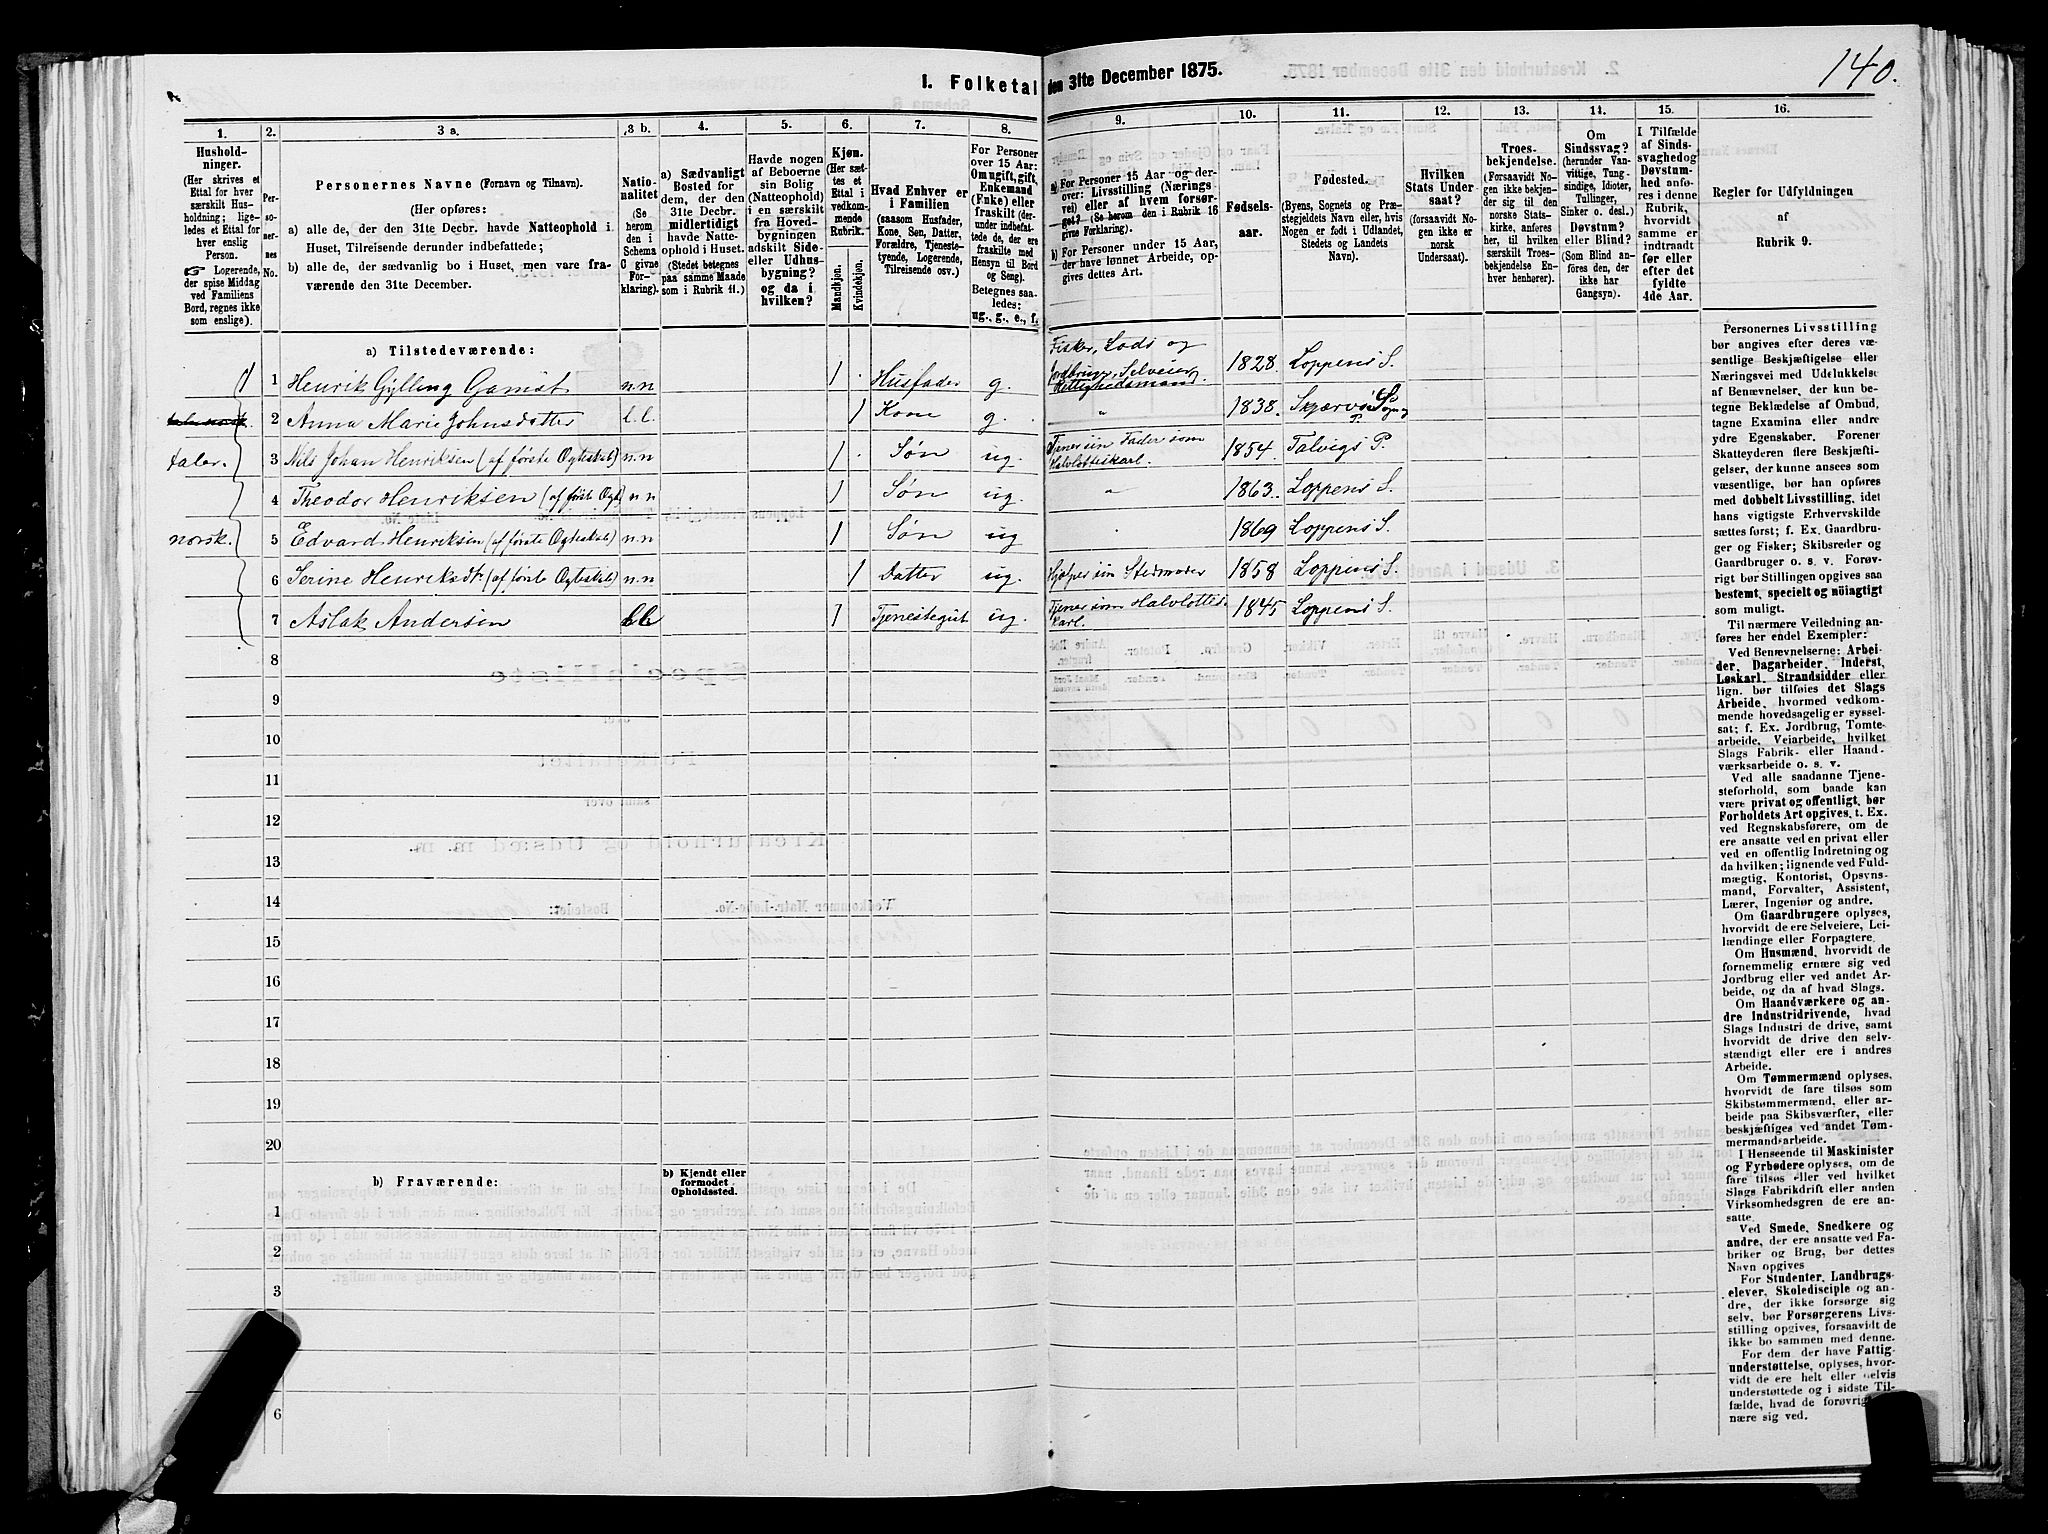 140.
1. Folketal den 31te December 1875.
1.
Hushold-
ninger.
(Her skrives et
Ettal for hver
særskilt Hus-
holdning; lige-
ledes et Ettal for
hver enslig
Person.
☞ Logerende,
der spise Middag
ved Familiens
Bord, regnes ikke
som enslige).
2.
Per-
so-
ner-
nes
No.
3 a.
Personernes Navne (Fornavn og Tilnavn).
(Her opføres:
a) alle de, der den 31te Decbr. havde Natteophold i
Huset, Tilreisende derunder indbefattede;
b) alle de, der sædvanlig bo i Huset, men vare fra-
værende den 31te December.
3 b.
Natio-
nalitet
(Se
herom
den i
Schema
C givne
For-
klaring).
4.
a) Sædvanligt
Bosted for
dem, der den
31te Decbr.
midlertidigt
havde Natte-
ophold i Huset.
(Stedet betegnes
paa samme Maade
som i Rubrik 11.)
5.
Havde nogen
af Beboerne
sin Bolig
(Natteophold)
i en særskilt
fra Hoved-
bygningen
adskilt Side-
eller Udhus-
bygning?
og da i
hvilken?
6.
Kjøn.
(Her sæt-
tes et
Ettal i
vedkom-
mende
Rubrik.
Mandkjøn.
Kvindekjøn.
7.
Hvad Enhver er
i Familien
(saasom Husfader,
Kone, Søn, Datter,
Forældre, Tjeneste-
tyende, Logerende,
Tilreisende osv.)
8.
For Personer
over 15 Aar:
Om ugift, gift,
Enkemand
(Enke) eller
fraskilt (der-
under indbefat-
tede de, der ere
fraskilte med
Hensyn til Bord
og Seng).
Betegnes saa-
ledes:
ug., g., e., f.
9.
a) For Personer 15 Aar og der-
over: Livsstilling (Nærings-
vei) eller af hvem forsør-
get? (Se herom den i Rubrik 16
givne Forklaring).
b) For Personer under 15 Aar,
der have lønnet Arbeide, op-
gives dettes Art.
10.
Fødsels-
aar.
11.
Fødested.
(Byens, Sognets og Præ-
stegjeldets Navn eller, hvis
Nogen er født i Udlandet,
Stedets og Landets
Navn).
12.
Hvilken
Stats Under-
saat?
(forsaavidt No-
gen ikke er
norsk
Undersaat).
13.
Troes-
bekjendelse.
(Forsaavidt No-
gen ikke bekjen-
der sig til den
norske Stats-
kirke, anføres
her, til hvilken
særskilt Troes-
bekjendelse En-
hver henhører).
14.
Om
Sindssvag?
(herunder Van-
vittige, Tung-
sindige, Idioter,
Tullinger,
Sinker o. desl.)
Døvstum?
eller Blind?
(Som Blind an-
føres den, der
ikke har
Gangsyn).
15.
I Tilfælde
af Sinds-
svaghed og
Døvstum-
hed anfø-
res i denne
Rubrik,
hvorvidt
samme er
indtraadt
før eller
efter det
fyldte
4de Aar.
16.
Regler for Udfyldningen
af
Rubrik 9.
a) Tilstedeværende:
1 1 Henrik Gylling Gamst n.n 1 Husfader g. Fisker, Lods og Jordbruger, Selveier, Rettighedsmand. 1828. Loppens S.
2 Anna Marie Johnsdatter l.l. 1 Kone g. „ 1838. Skjervø Sogn, P.
taler. 3 Nils Johan Henriksen (af første Ægteskab) n.n 1 Søn ug. Tjener sin Fader som Halvlottskarl. 1854. Talvigs P.
4 Theodor Henriksen (af først Ægt) n.n 1 Søn ug. „ 1863. Loppens S.
norsk. 5 Edvard Henriksen (af første Ægteskab) n.n 1 Søn ug 1869 Loppens S.
6 Serine Henriksdt. (af første Ægteskab) n.n 1 Datter ug. Hjælper sin Stedmoder 1858 Loppens S.
7 Aslak Andersen 1 Tjenestegut ug. Tjener som Halvlottskarl. 1845 Loppens S.
8
9
10
11
12
13
14
15
16
17
18
19
20
b) Fraværende:
b) Kjendt eller
formodet
Opholdssted.
1
2
3
6
Personernes Livsstilling
bør angives efter deres væ-
sentlige Beskjæftigelse eller
Næringsvei med Udelukkelse
af Benævnelser, der kun be-
tegne Beklædelse af Ombud,
tagne Examina eller andre
ydre Egenskaber. Forener
Skatteyderen flere Beskjæfti-
gelser, der kunne ansees som
væsentlige, bør han opføres
med dobbelt Livsstilling, idet
hans vigtigste Erhvervskilde
sættes først; f. Ex. Gaardbru-
ger og Fisker; Skibsreder og
Gaardbruger o. s. v. Forøv-
rigt bør Stillingen opgives saa
bestemt, specielt og nöiagtigt
som muligt.
Til nærmere Veiledning an-
føres her endel Exempler:
Ved Benævnelserne: Arbei-
der, Dagarbeider, Inderst,
Løskarl, Strandsidder eller
lign. bør tilføies det Slags
Arbeide, hvormed vedkom-
mende hovedsagelig er syssel-
sat; f. Ex. Jordbrug, Tomte-
arbeide, Veiarbeide, hvilket
Slags Fabrik- eller Haand-
værksarbeide o. s. v.
Ved alle saadanne Tjene-
steforhold, som baade kan
være privat og offentligt, bør
Forholdets Art opgives, t. Ex.
ved Regnskabsførere, om de
ere ansatte ved en privat eller
ved en offentlig Indretning og
da hvilken; lignende ved Fuld-
mægtig, Kontorist, Opsyns-
mand, Forvalter, Assistent,
Lærer, Ingeniør og andre.
Om Gaardbrugere oplyses,
hvorvidt de ere Selveiere, Lei-
lændinge eller Forpagtere.
Om Husmænd, hvorvidt de
fornemmelig ernære sig ved
Jordbrug eller ved andet Ar-
beide, og da af hvad Slags.
Om Haandværkere og an-
dre Industridrivende, hvad
Slags Industri de drive, samt
hvorvidt de drive den selv-
stændigt eller ere i andres
Arbeide.
Om Tømmermænd oplyses,
hvorvidt de fare tilsøs som
Skibstømmermænd, eller ar-
beide paa Skibsværfter, eller
beskjæftiges ved andet Tøm-
mermandsarbeide.
I Henseende til Maskinister
og Fyrbødere oplyses, om de
fare tilsøs eller ved hvilket
Slags Fabrikdrift eller anden
Virksomhedsgren de ere an-
satte.
Ved Smede, Snedkere og
andre, der ere ansatte ved Fa-
briker og Brug, bør dettes
Navn opgives
For Studenter, Landbrugs-
elever, Skoledisciple og an-
dre, der ikke forsørge sig
selv, bør Forsørgerens Livs-
stilling opgives, forsaavidt de
ikke bo sammen med denne.
For dem, der have Fattig-
understøttelse, oplyses, hvor-
vidt de ere helt eller delvis
understøttede og i sidste Til-
fælde, hvad de forøvrigt
nære sig ved.